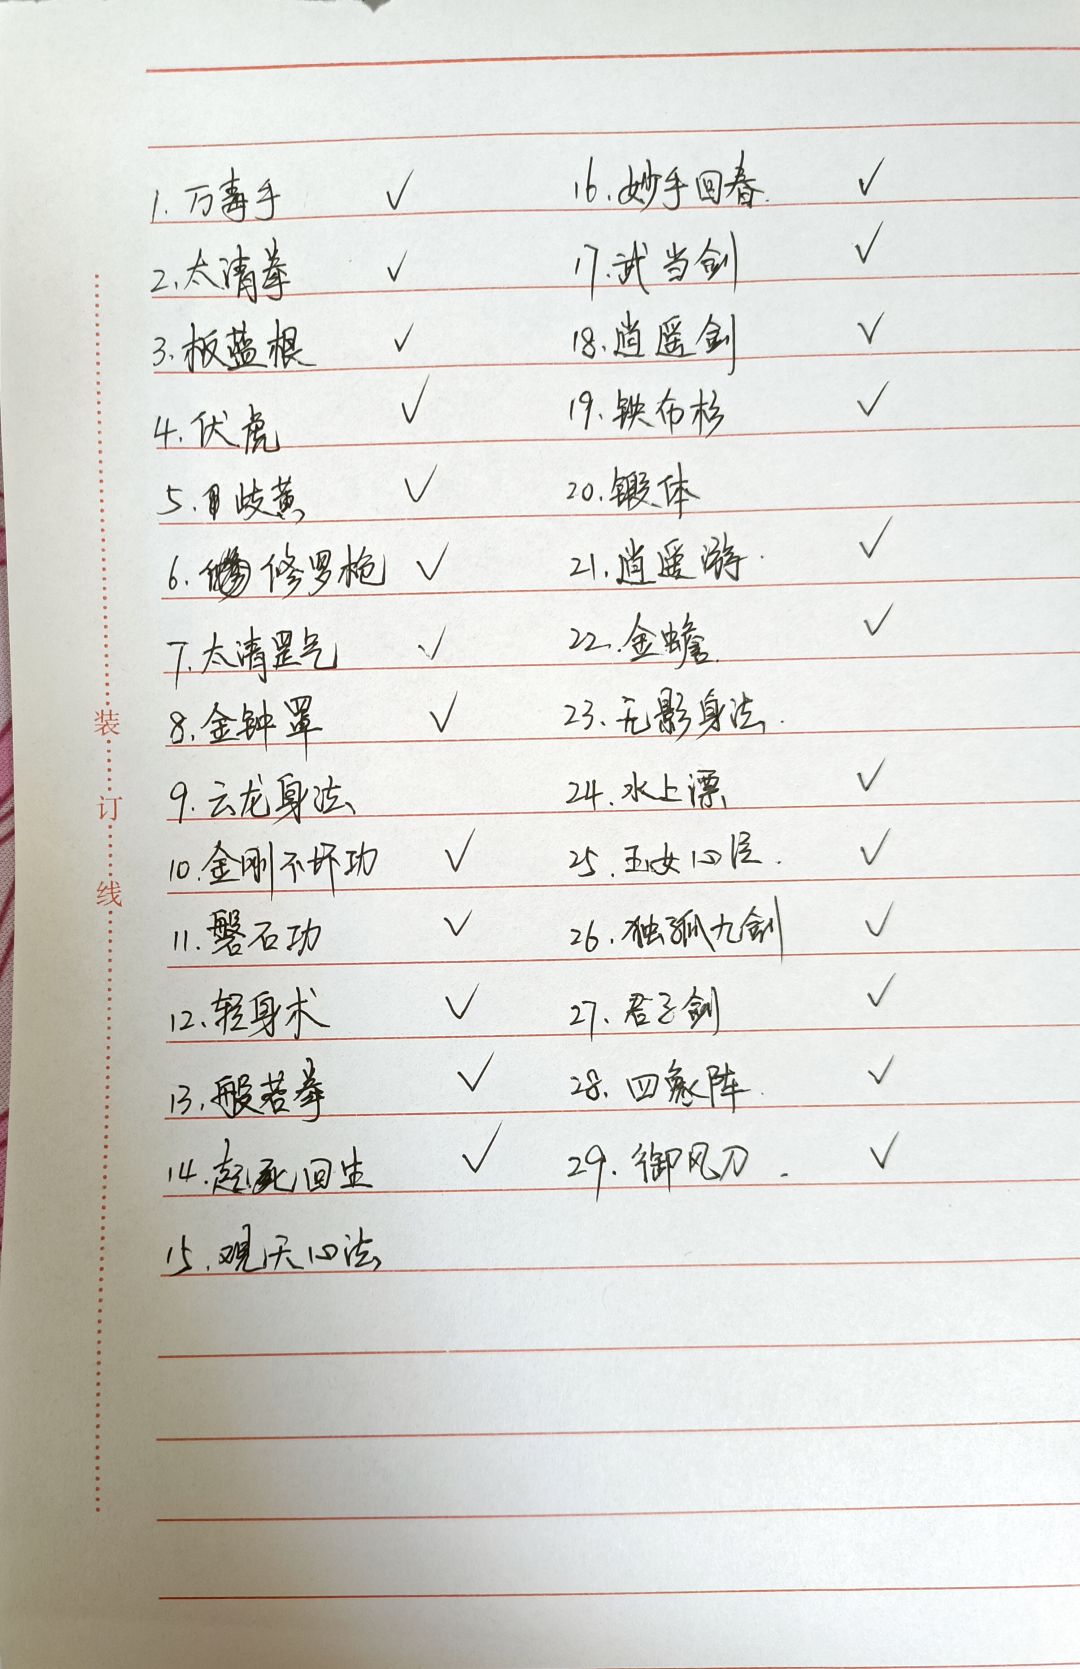 1.万毒手 ✓
2.太清拳 ✓
3.板蓝根 ✓
4.伏虎 ✓
5.岐黄 ✓
6.修罗枪 ✓
7.太清罡气 ✓
8.金钟罩 ✓
9.云龙身法
10.金刚不坏功 ✓
11.磐石功 ✓
12.轻身术 ✓
13.般若拳 ✓
14.起死回生 ✓
15.观天心法
16.妙手回春. ✓
17.武当剑 ✓
18.逍遥剑 ✓
19.铁布衫 ✓
20.锻体
21.逍遥游. ✓
22.金蟾. ✓
23.无影身法.
24.水上漂 ✓
25.玉女心法. ✓
26.独孤九剑 ✓
27.君子剑 ✓
28.四象阵. ✓
29.御风刀. ✓
装
订
线